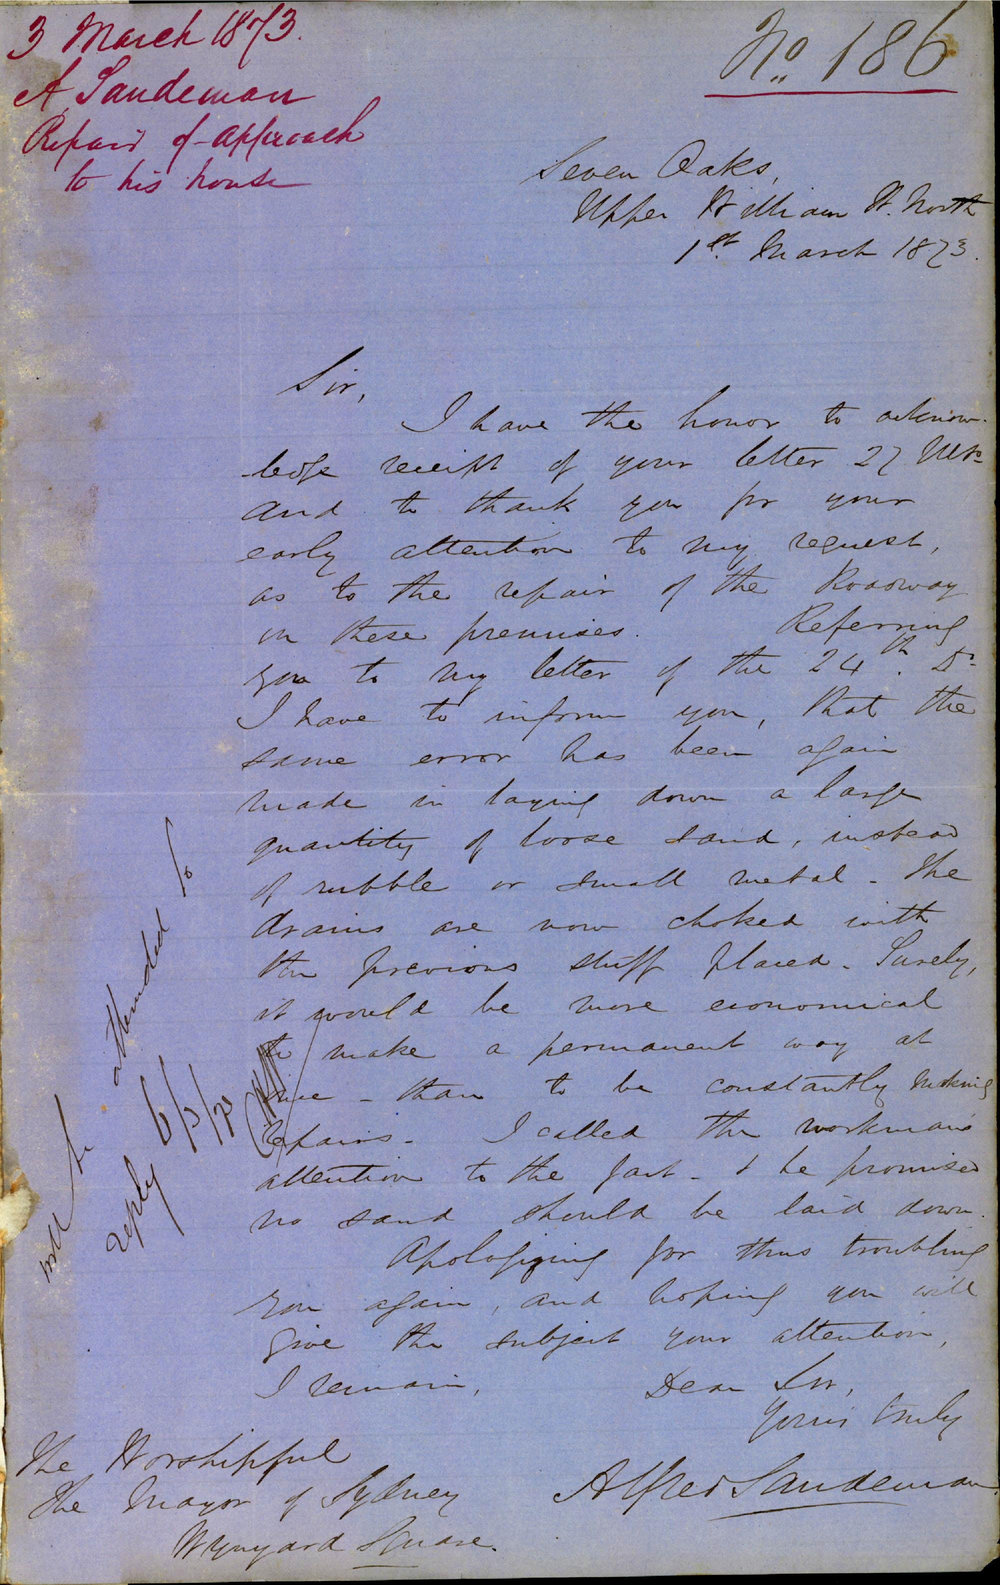 3 March 1873.
A Sandeman
Repair of approach
to his house
No. 186
Seven Oaks,
Upper William St. North
1st March 1873.
Sir,
I have the honor to acknow-
ledge receipt of your letter 27 Ulto
and to thank you for your
early attention to my request,
as to the repair of the Roadway
on these premises. Referring
you to my letter of the 24th. Do
I have to inform you, that the
same error has been again
made in laying down a large
quantity of loose sand, instead
of rubble or small metal - The
drains are now choked with
the previous stuff placed - Surely,
it would be more economical
to make a permanent way at
once - than to be constantly making
repairs - I called the workman's
attention to the fact - & he promised
no sand should be laid down.
Apologizing for thus troubling
you again, and hoping you will
give the subject your attention,
I remain, Dear Sir,
Yours truly
Alfred Sandeman.
The Worshipful
The Mayor of Sydney
Wynyard Square.
will be attended to
reply 6/3/73